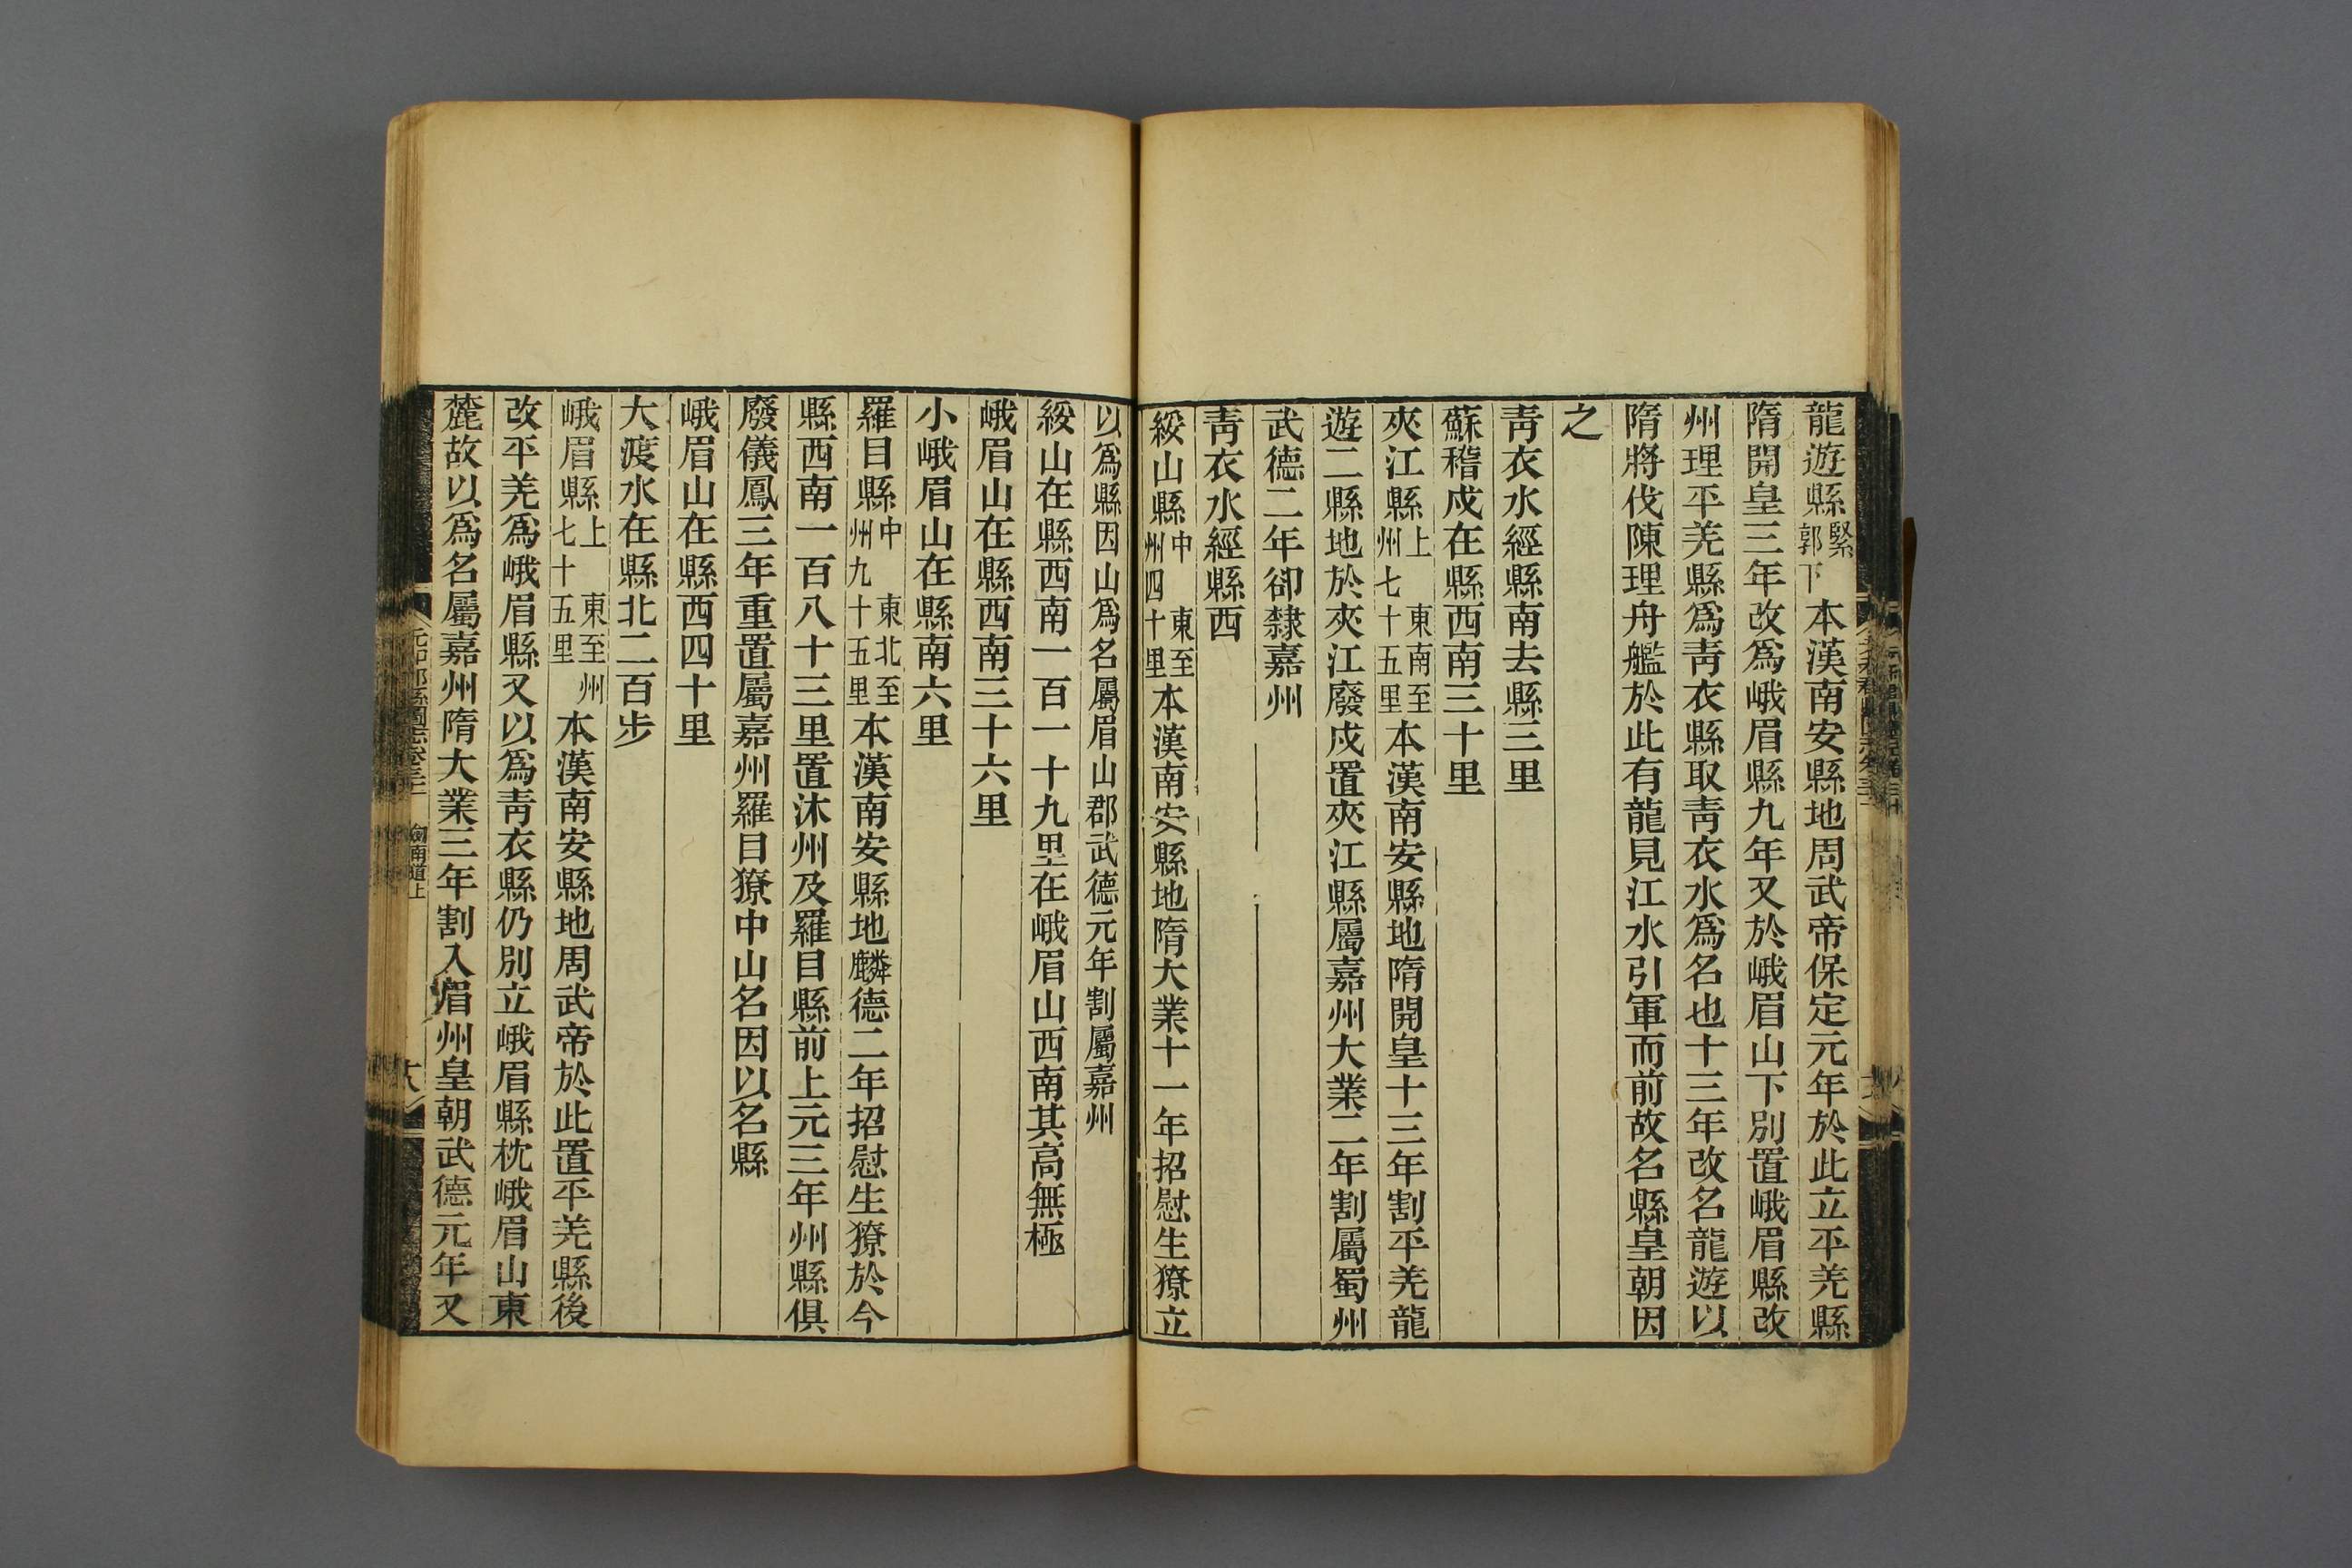 龍遊縣緊郭下本漢南安縣地周武帝保定元年於此立平羌縣
隋開皇三年改爲峨眉縣九年又於峨眉山下別置峨眉縣改
州理平羌縣爲靑衣縣取靑衣水爲名也十三年改名龍遊以
隋將伐陳理舟艦於此有龍見江水引軍而前故名縣皇朝因
之
靑衣水經縣南去縣三里
蘇稽戍在縣西南三十里
夾江縣上東南至州七十五里本漢南安縣地隋開皇十三年割平羌龍
遊二縣地於夾江廢戍置夾江縣屬嘉州大業二年割屬蜀州
武德二年卻隸嘉州
靑衣水經縣西
綏山縣中東至州四十里本漢南安縣地隋大業十一年招慰生獠立
以爲縣因山爲名屬眉山郡武德元年割屬嘉州
綏山在縣西南一百一十九里在峨眉山西南其高無極
峨眉山在縣西南三十六里
小峨眉山在縣南六里
羅目縣中東北至州九十五里本漢南安縣地麟德二年招慰生獠於今
縣西南一百八十三里置沐州及羅目縣前上元三年州縣俱
廢儀鳳三年重置屬嘉州羅目獠中山名因以名縣
峨眉山在縣西四十里
大渡水在縣北二百步
峨眉縣上東至州七十五里本漢南安縣地周武帝於此置平羌縣後
改平羌爲峨眉縣又以爲靑衣縣仍別立峨眉縣枕峨眉山東
麓故以爲名屬嘉州隋大業三年割入眉州皇朝武德元年又
元和郡縣圖志卷三十一 劍南道上